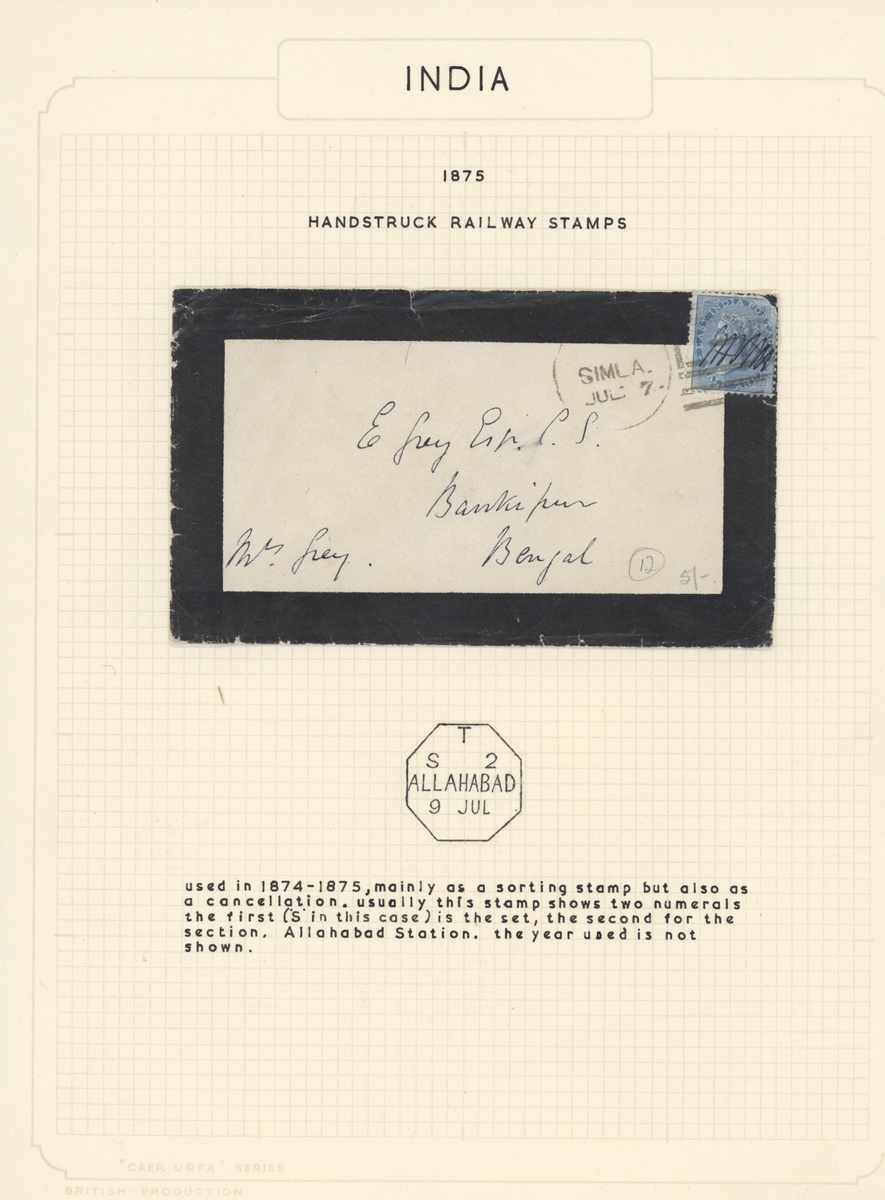 INDIA
1875
HANDSTRUCK RAILWAY STAMPS
EAST INDIA POSTAGE
SIMLA.
JUL 7.
E Grey Esqr. C. S.
Bankipur
Mrs Grey.
Bengal
12
5/-.
T
S 2
ALLAHABAD
9 JUL
used in 1874-1875,mainly as a sorting stamp but also as
a cancellation. usually this stamp shows two numerals
the first ('S' in this case) is the set, the second for the
section. Allahabad Station. the year used is not
shown.
"CAER URFA" SERIES
BRITISH PRODUCTION